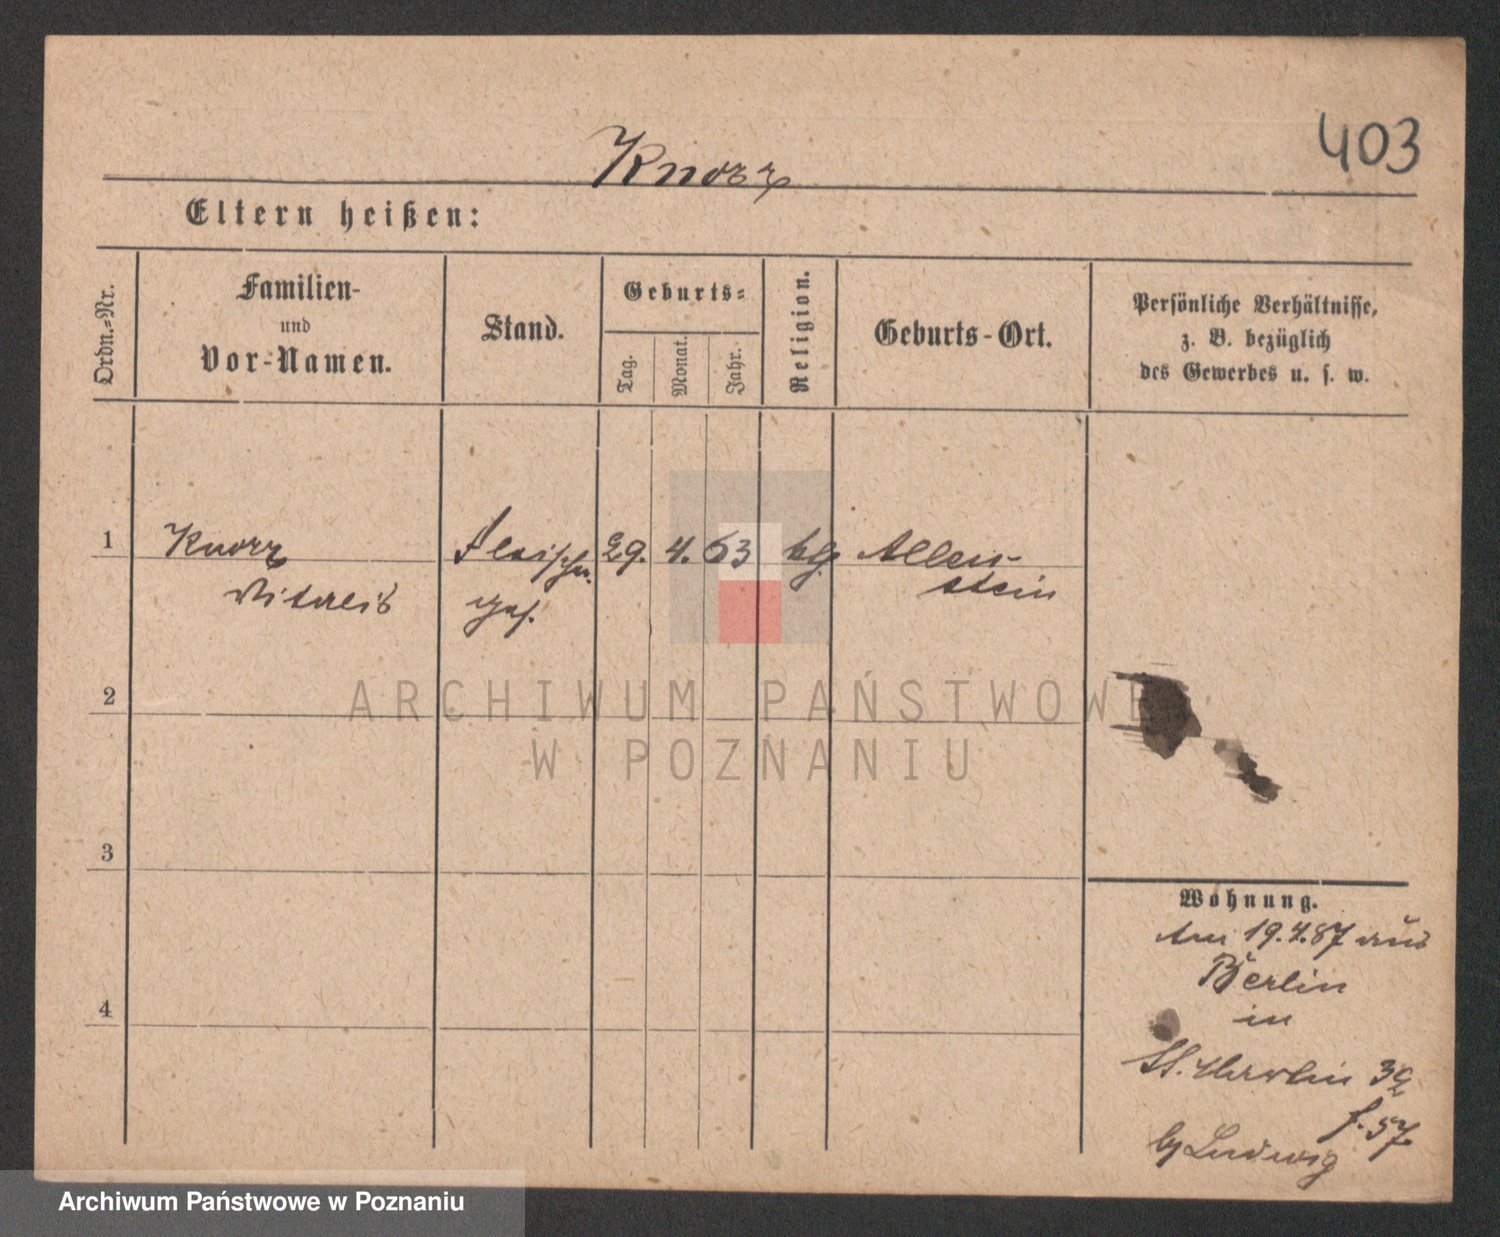 403
Knorr
Eltern heißen:
Ordn.=Nr.
Familien-
und
Vor-Namen.
Stand.
Geburts=
Tag.
Monat.
Jahr.
Religion.
Geburts-Ort.
Persönliche Verhältnisse,
z. B. bezüglich
des Gewerbes u. s. w.
1 Knorr Fleischer 29. 4. 63 klg Allen-
Vitalis ges. stein
2
3
4
Wohnung.
Am 19.4.87 aus
Berlin
in
St. Martin 39
f. 57.
by Ludwig
ARCHIWUM PAŃSTWOWE
W POZNANIU
Archiwum Państwowe w Poznaniu